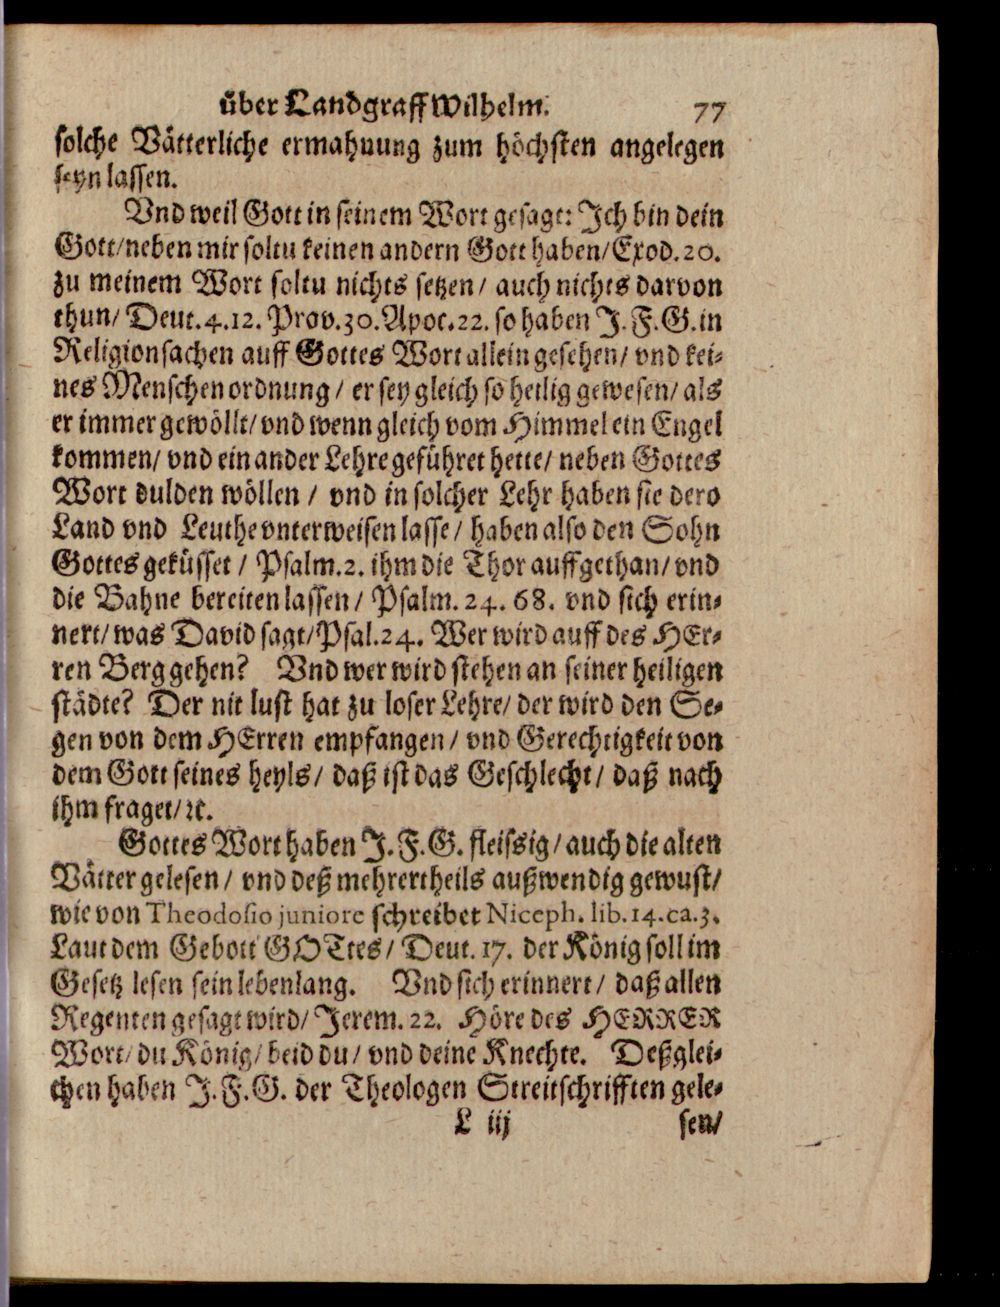 über Landgraff Wilhelm. 77
solche Vätterliche ermahnung zum höchsten angelegen
seyn lassen.
Vnd weil Gott in seinem Wort gesagt: Ich bin dein
Gott/ neben mir soltu keinen andern Gott haben/ Exod. 20.
zu meinem Wort soltu nichts setzen/ auch nichts darvon
thun/ Deut. 4. 12. Prov. 30. Apoc. 22. so haben J. F. G. in
Religionsachen auff Gottes Wort allein gesehen/ vnd kei-
nes Menschen ordnung/ er sey gleich so heilig gewesen/ als
er immer gewöllt/ vnd wenn gleich vom Himmel ein Engel
kommen/ vnd ein ander Lehre geführet hette/ neben Gottes
Wort dulden wöllen/ vnd in solcher Lehr haben sie dero
Land vnd Leuthe vnterweisen lasse/ haben also den Sohn
Gottes geküsset/ Psalm. 2. ihm die Thor auffgethan/ vnd
die Bahne bereiten lassen/ Psalm. 24. 68. vnd sich erin-
nert/ was David sagt/ Psal. 24. Wer wird auff des HEr-
ren Berg gehen? Vnd wer wird stehen an seiner heiligen
städte? Der nit lust hat zu loser Lehre/ der wird den Se-
gen von dem HErren empfangen/ vnd Gerechtigkeit von
dem Gott seines heyls/ daß ist das Geschlecht/ daß nach
ihm fraget/ ꝛc.
Gottes Wort haben J. F. G. fleissig/ auch die alten
Vätter gelesen/ vnd deß mehrertheils außwendig gewust/
wie von Theodosio juniore schreibet Niceph. lib. 14. ca. 3.
Laut dem Gebott GOTtes/ Deut. 17. der König soll im
Gesetz lesen sein lebenlang. Vnd sich erinnert/ daß allen
Regenten gesagt wird/ Jerem. 22. Höre des HERRER
Wort/ du König/ beid du/ vnd deine Knechte. Deßglei-
chen haben J. F. G. der Theologen Streitschrifften gele-
L iij sen/